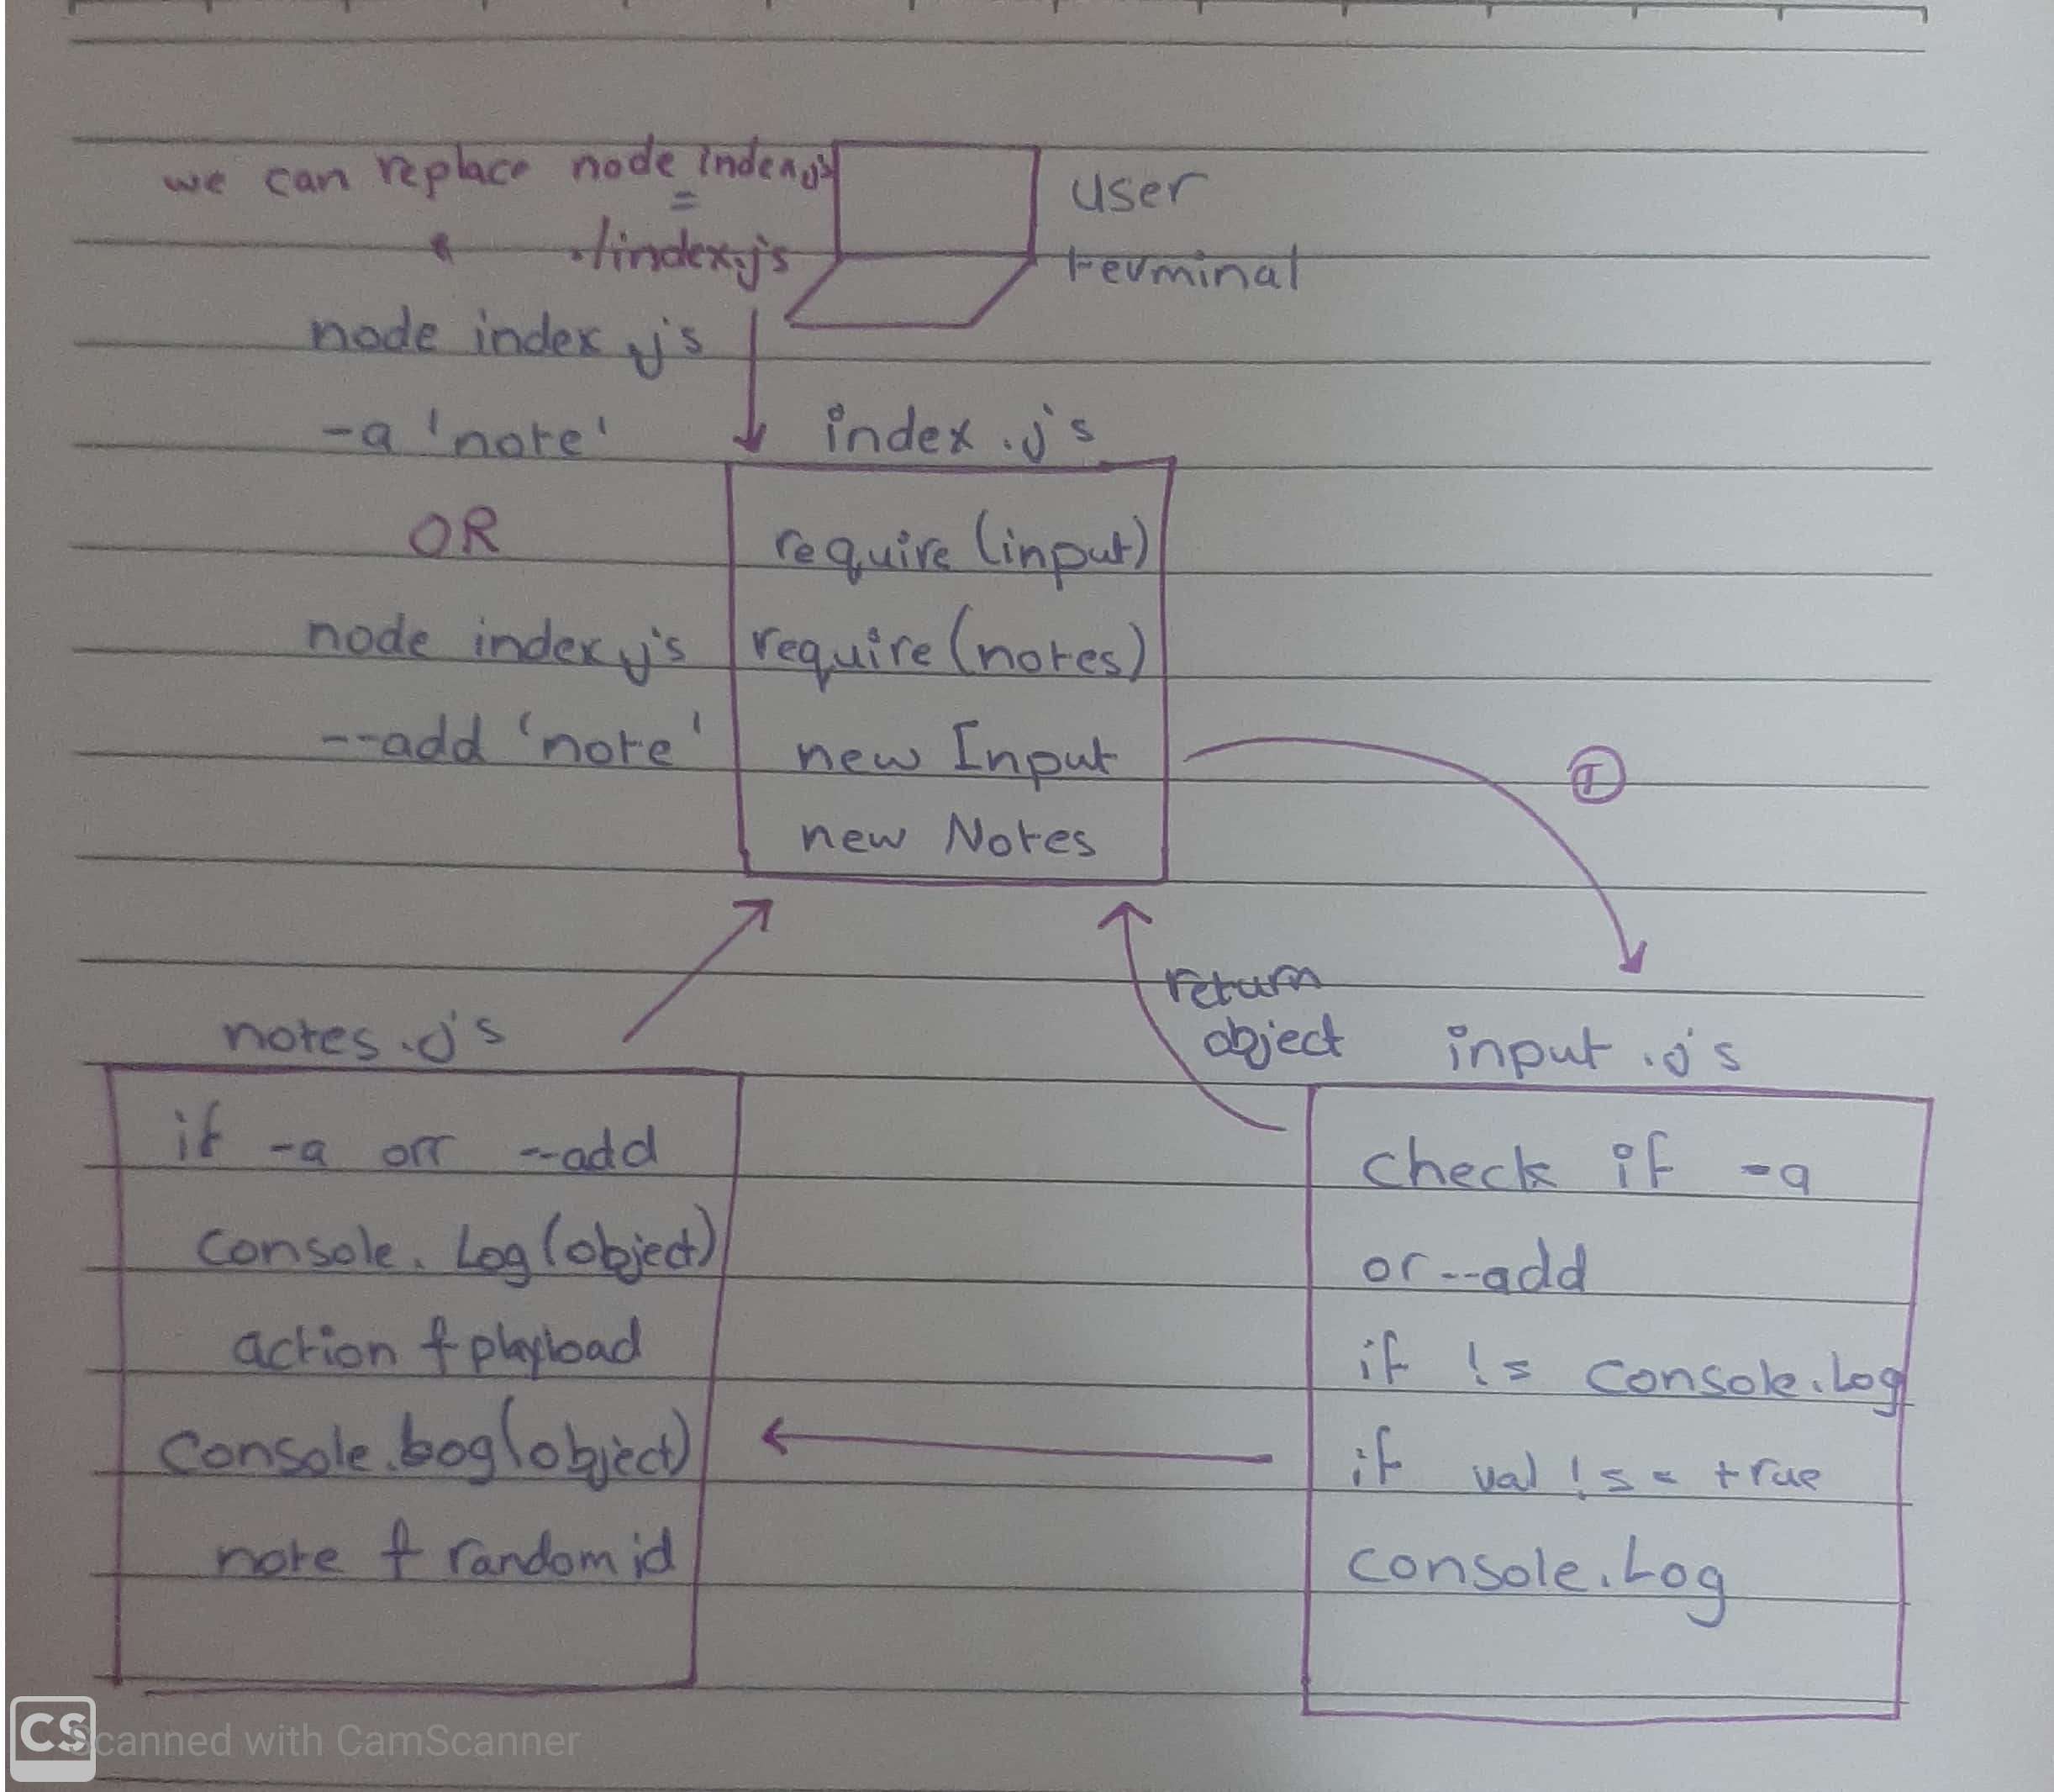 we can replace node index.js
=
./index.js
user
terminal
node index.js
-a 'note'
OR
node index.js
--add 'note'
index.js
require (input)
require (notes)
new Input
new Notes
1
return
object
notes.js
if -a orr --add
console.Log(object)
action & playload
console.log(object)
note & random id
input.js
check if -a
or --add
if != console.Log
if val != = true
console.Log
CS
Scanned with CamScanner